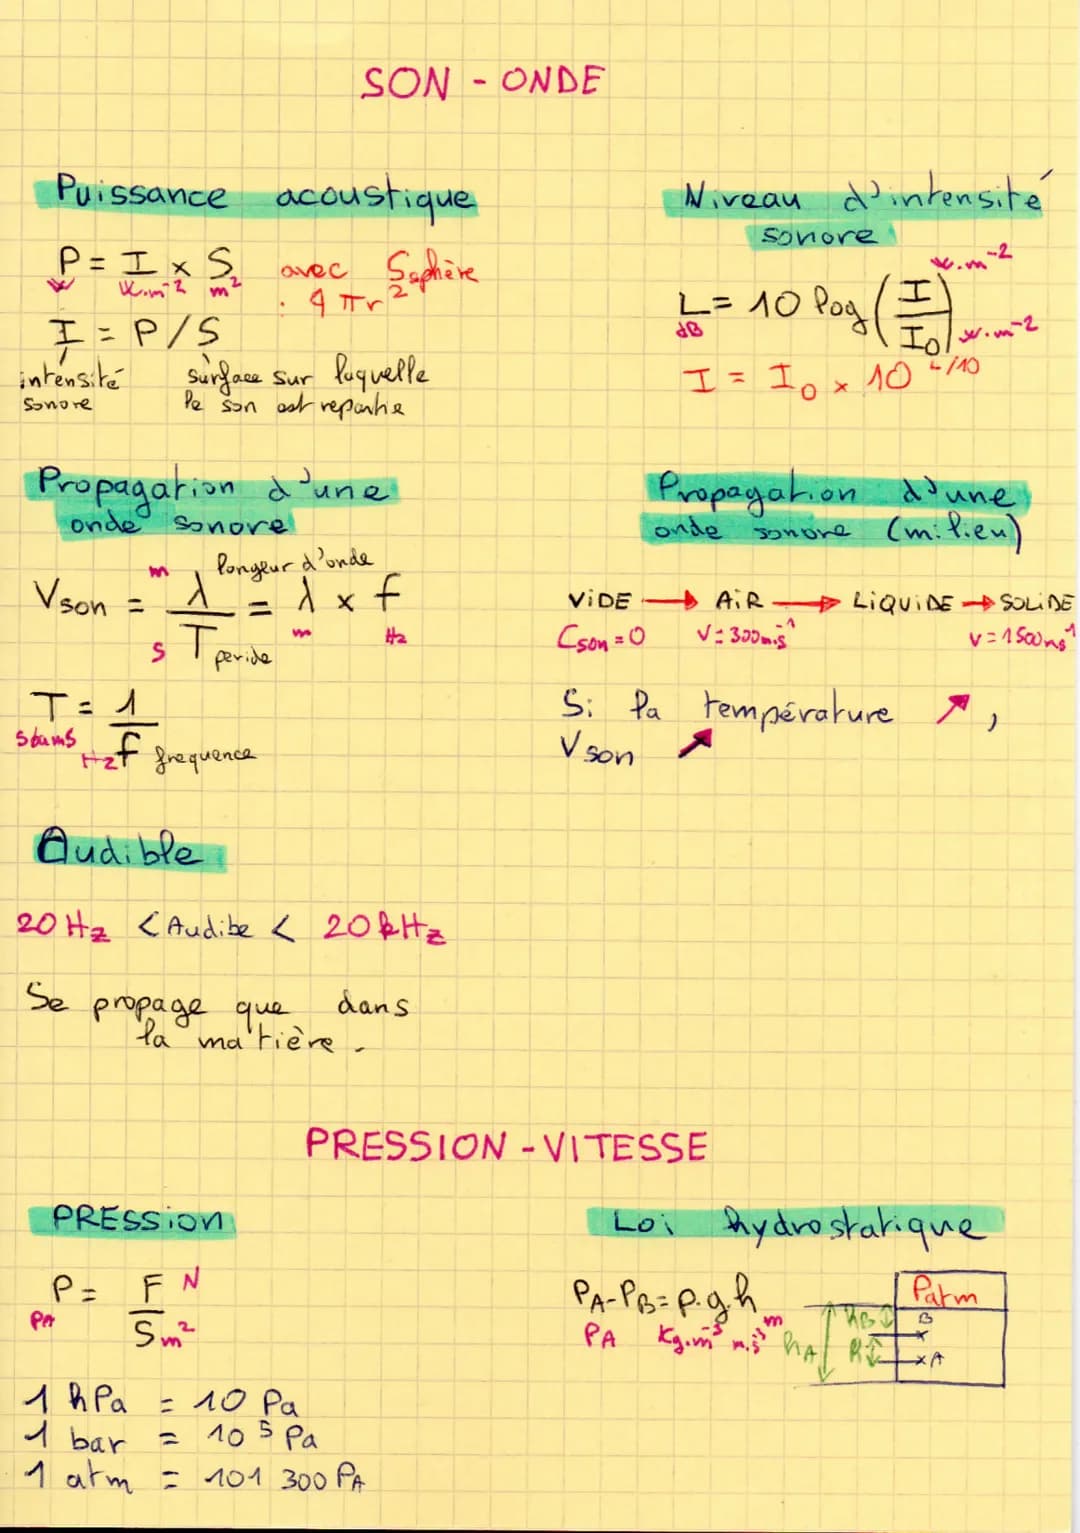 SON - ONDE
Puissance acoustique
P = I x S avec Ssphère
W W.m⁻² m² : 4 πr²
I = P/S
intensité surface sur laquelle
sonore le son est repartie
Niveau d'intensité
sonore
W.m⁻²
L = 10 log (I/I₀)
dB W.m⁻²
I = I₀ x 10^L/10
Propagation d'une
onde sonore
m longeur d'onde
Vson = λ/T = λ x f
s peride m Hz
T = 1/f
Hz frequence
Propagation d'une
onde sonore (milieu)
ViDE → AiR → LiQUiDE → SOLiDE
Cson = 0 V = 300m.s⁻¹ V = 1500ms⁻¹
Si la température ↗,
Vson ↗
Audible
20 Hz < Audibe < 20 kHz
Se propage que dans
la matière.
PRESSION - VITESSE
PRESSiON
P = F/S N
PA m²
1 hPa = 10 Pa
1 bar = 10⁵ Pa
1 atm = 101 300 PA
Loi hydrostatique
PA-PB = ρ.g.h
PA Kg.m⁻³ m
Patm
hB B
hA h A